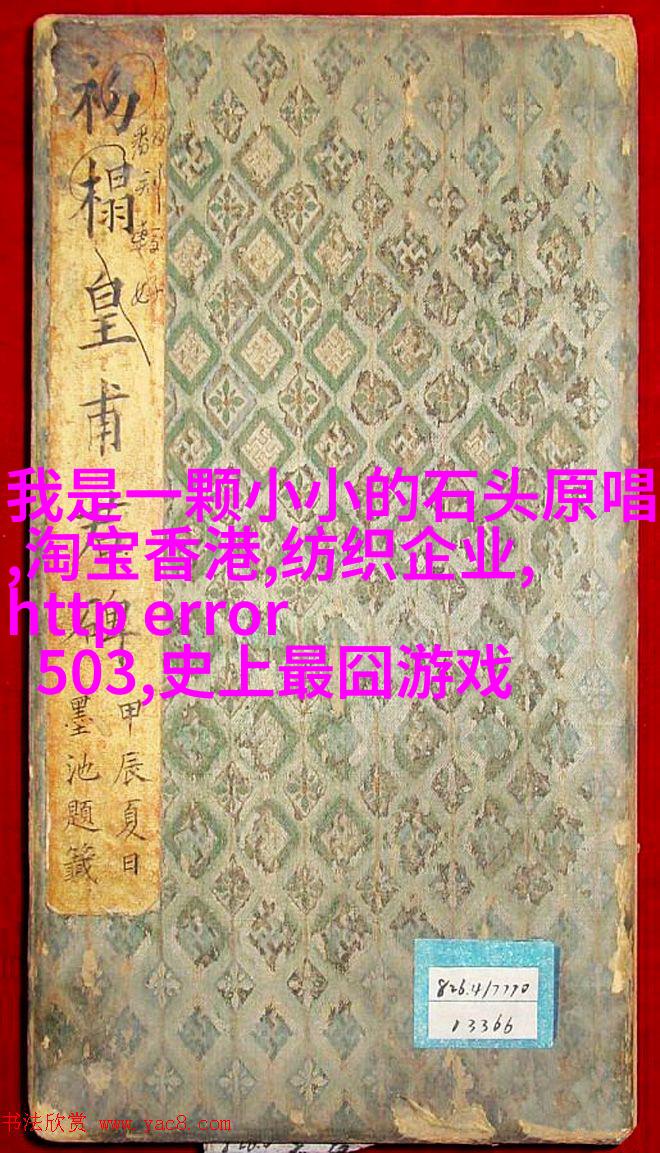 初榻皇甫君碑
翻刻較好
甲辰夏日
墨池題籤
我是一颗小小的石头原唱
,淘宝香港,纺织企业,
http error
503,史上最囧游戏
826.4/7770
13366
书法欣赏 www.yac8.com